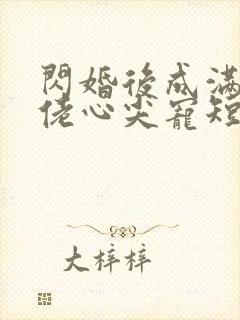 閃婚後成滿
佬心尖寵短
大梓梓